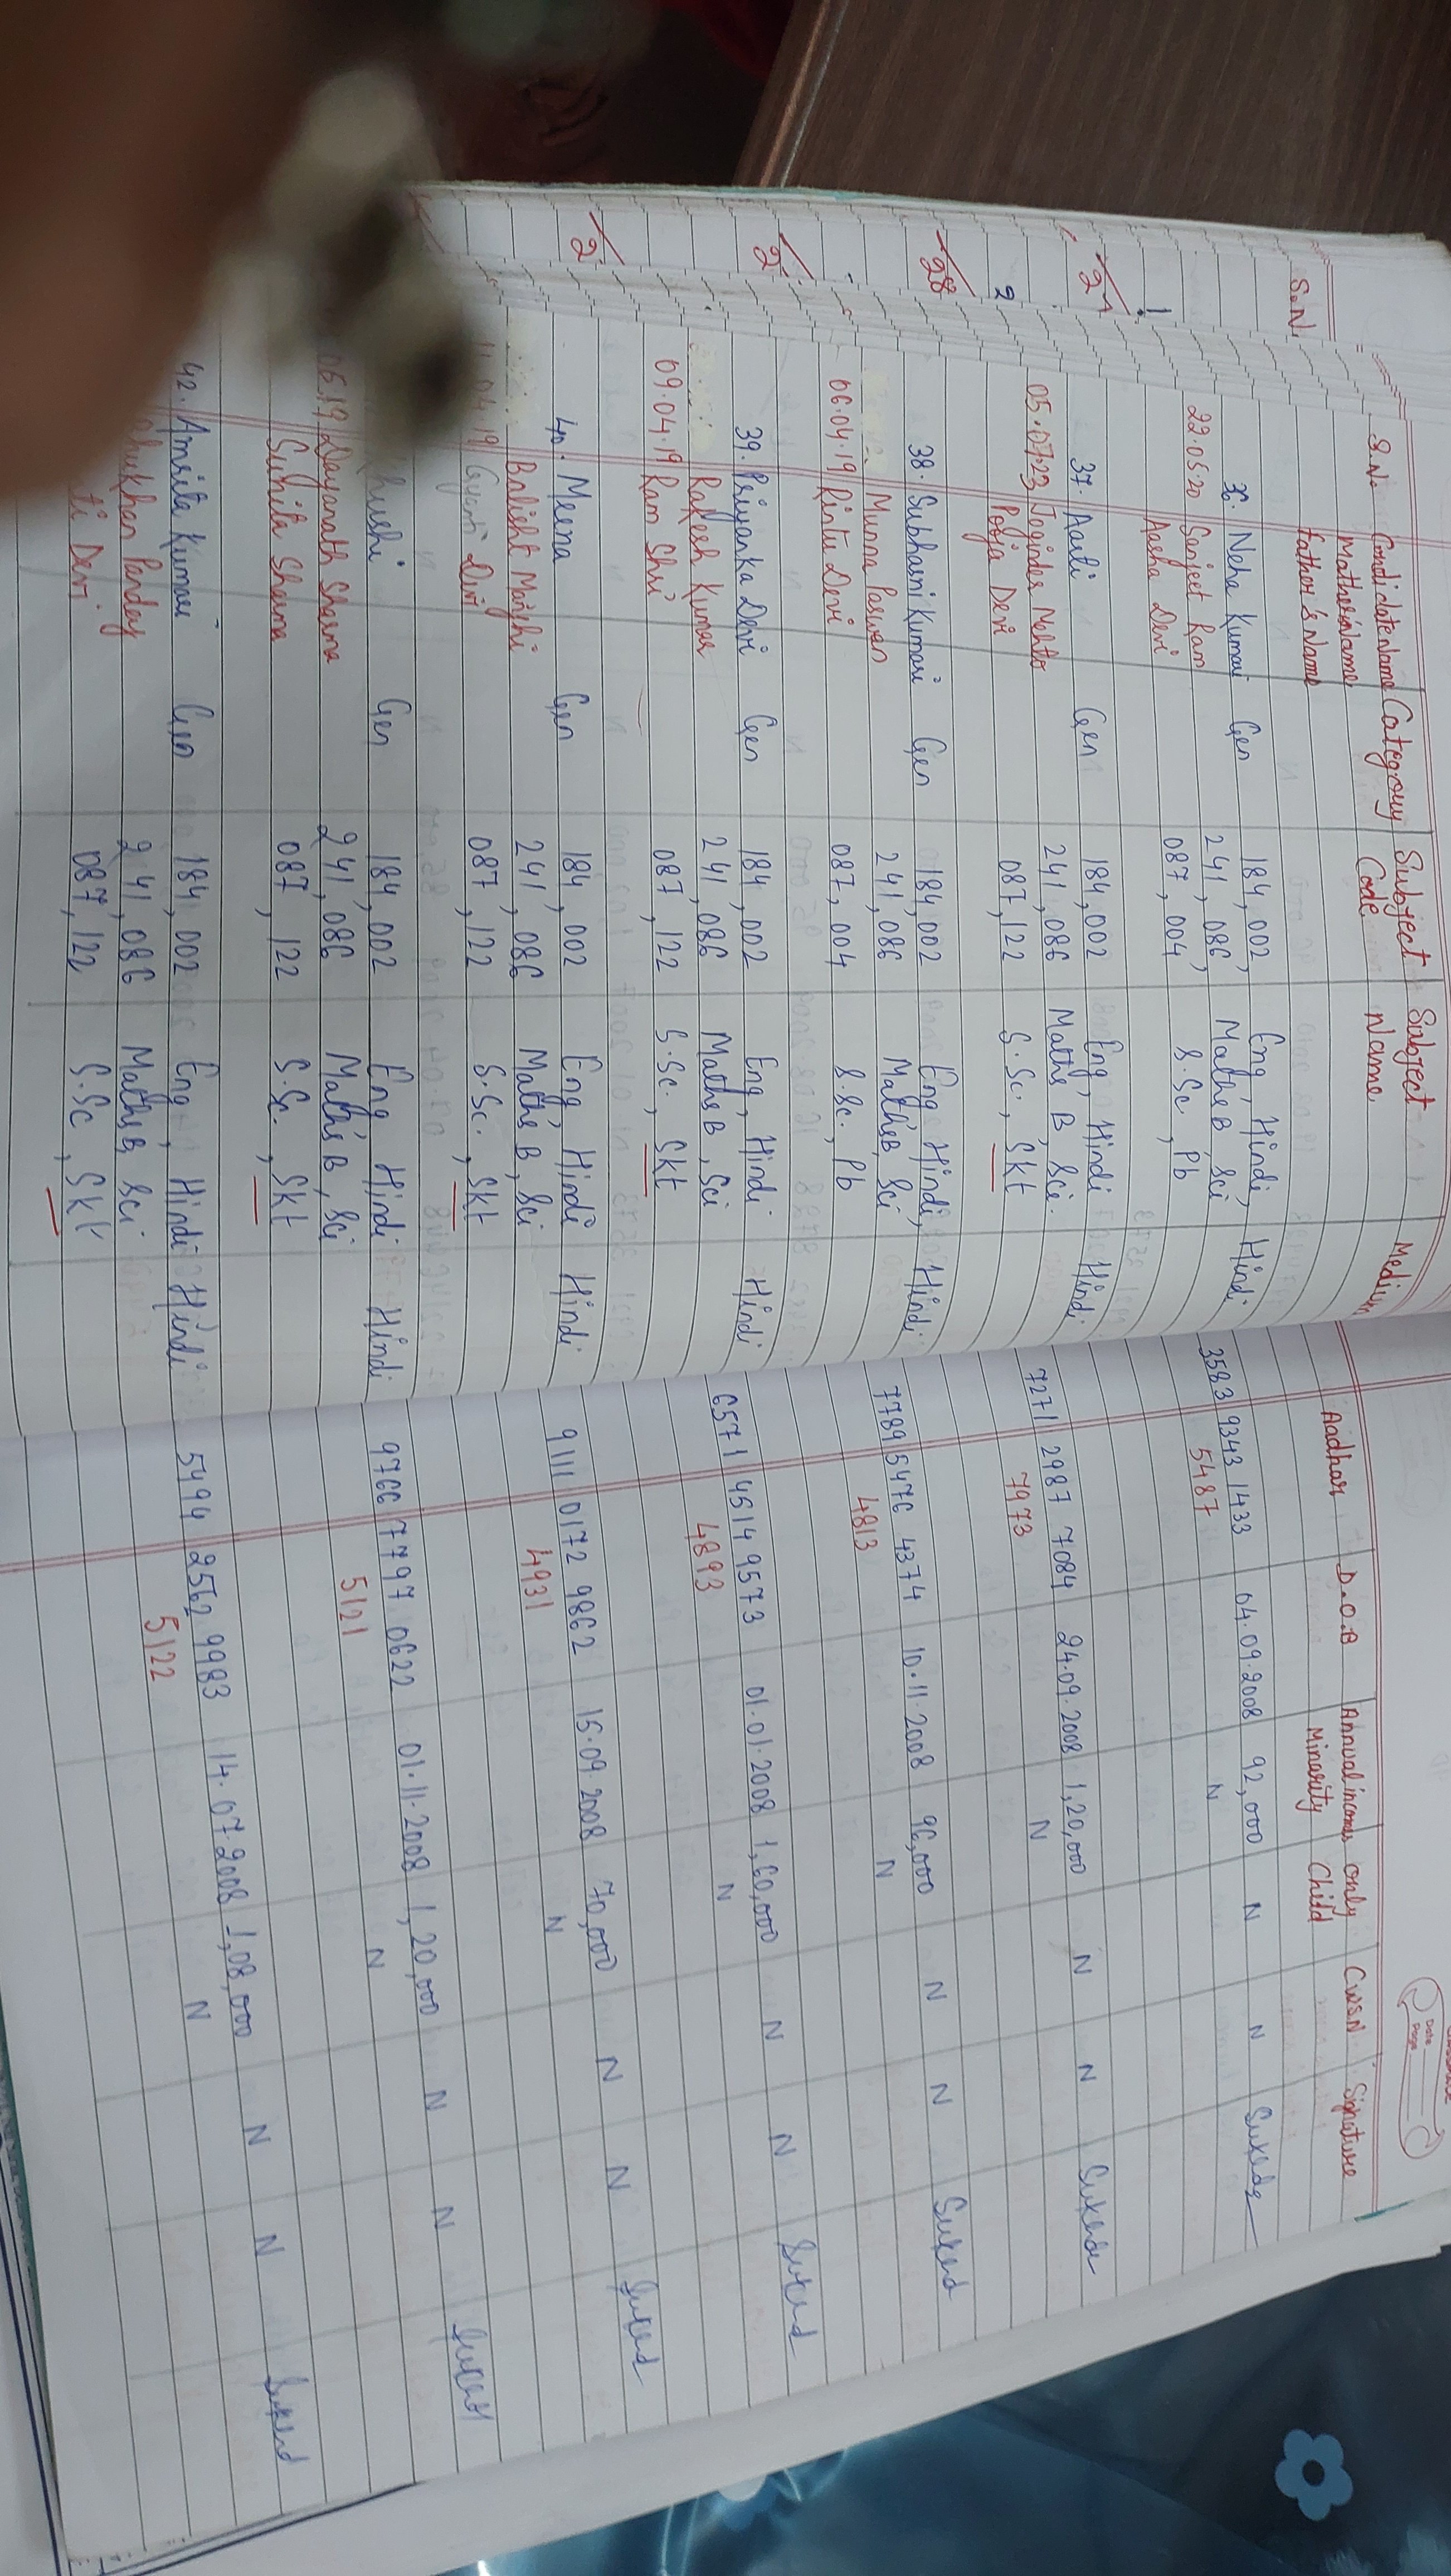 S.N.
S.N. Candidate Name Category Subject Code Subject Name Medium Aadhar D.O.B Annual income only Child CWSN Signature
Mother's Name Minority
Father's Name
36. Neha Kumari Gen 184, 002, Eng, Hindi, Hindi 3583 9343 1433 04.09.2008 92,000 N N
22.05.20 Sanjeet Ram 241, 086, Maths B, Sci 5487 N
Aasha Devi 087, 004 S.Sc, Pb
37. Aarti Gen 184, 002 Eng, Hindi Hindi 7271 2987 7084 24.09.2008 1,20,000 N N
05.07.23 Joginder Mehto 241, 086 Maths B, Sci. 7973 N
Pooja Devi 087, 122 S.Sc., Skt
38. Subhasni Kumari Gen 184, 002 Eng, Hindi, Hindi 7789 5476 4374 10.11.2008 96,000 N N
Munna Paswan 241, 086 Maths B, Sci 4813 N
06.04.19 Rintu Devi 087, 004 S.Sc., Pb
39. Priyanka Devi Gen 184, 002 Eng, Hindi Hindi 6571 4514 9573 01.01.2008 1,60,000 N N
Rakesh Kumar 241, 086 Maths B, Sci 4893 N
09.04.19 Ram Shri 087, 122 S.Sc., Skt
40. Meena Gen 184, 002 Eng, Hindi Hindi 9111 0172 9862 15.09.2008 70,000 N N
Balisht Majhi 241, 086 Maths B, Sci 4931 N
04.19 Gyanti Devi 087, 122 S.Sc., Skt
Gen 184, 002 Eng, Hindi Hindi 9766 7797 0622 01.11.2008 1,20,000 N N
05.19 Dayanath Sharma 241, 086 Maths B, Sci 5121 N
Sunita Sharma 087, 122 S.Sc., Skt
42. Amrita Kumari Gen 184, 002 Eng, Hindi Hindi 5494 2562 9983 14.07.2008 1,08,000 N N
Panday 241, 086 Maths B, Sci 5122 N
Devi 087, 122 S.Sc, Skt
Date
Page